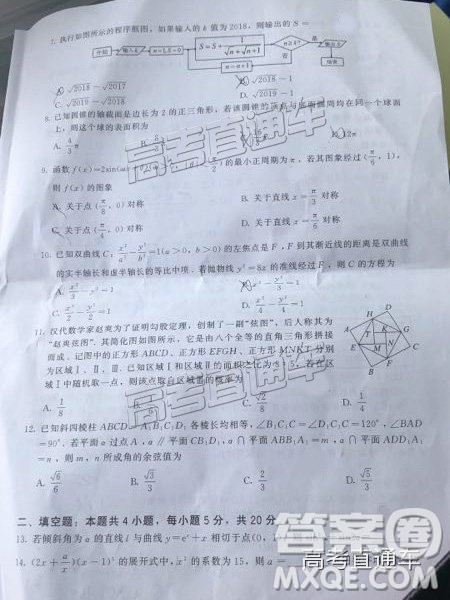 7. 执行如图所示的程序框图，如果输入的 k 值为 2018，则输出的 S =
开始 输入 k n=1, S=0 S=S+1/(√n+√(n+1)) n≥k? 是 输出 S
否 结束
n=n+1
A. √2018-√2017 B. √2018-1
C. √2019-√2018 D. √2019-1
8. 已知圆锥的轴截面是边长为 2 的正三角形，若该圆锥的顶点与底面圆周均在同一个球面
上，则这个球的表面积为
A. 4/3 π B. D. 12π
9. 函数 f(x)=2sin( 的最小正周期为 π，若其图象经过(π/6, 1)，
则 f(x) 的图象
A. 关于点 对称 B. 关于直线 x=π/3 对称
C. 关于点 对称 D. 关于直线 x=π/6 对称
10. 已知双曲线 C: x²/a²-y²/b²=1(a>0, b>0) 的左焦点是 F，F 到其渐近线的距离是双曲线
的实半轴长和虚半轴长的等比中项．若抛物线 y²=8x 的准线经过 F，则 C 的方程为
A. x²/3-y²=1 B. x²-y²/3=1
C. x²/2-y²/2=1 D. x²/4-y²/4=1
11. 汉代数学家赵爽为了证明勾股定理，创制了一副“弦图”，后人称其为
“赵爽弦图”．其简化图如图所示，它是由八个全等的直角三角形拼接
而成．记图中的正方形 ABCD、正方形 EFGH、正方形 MNKT 分别
为区域Ⅰ、Ⅱ、Ⅲ．已知区域Ⅰ和区域Ⅲ的面积之比为 若在区
域Ⅰ中随机取一点，则该点取自区域Ⅲ的概率为
H D G A T K E M N C B F
A. 1/8 C. √2/8 D. 1/4
12. 已知斜四棱柱 ABCD-A₁B₁C₁D₁ 各棱长均相等，∠B₁C₁C=∠D₁C₁C=120°，∠BAD
=90°．若平面 α 过点 A，α∥平面 CB₁D₁，α∩平面 ABB₁A₁=m，α∩平面 ADD₁A₁
=n，则 m，n 所成角的余弦值为
A. √6/6 B. √3/3 C. 2/3 D. √5/3
二、填空题：本题共 4 小题，每小题 5 分，共 20 分．
13. 若倾斜角为 α 的直线 l 与曲线 y=eˣ+x 相切于点(0,
14. (2x+a/x)(x-1)⁵ 的展开式中，x² 的系数为 15，则 a=
高考直通车
高考直通车
答案圈
高考直通车